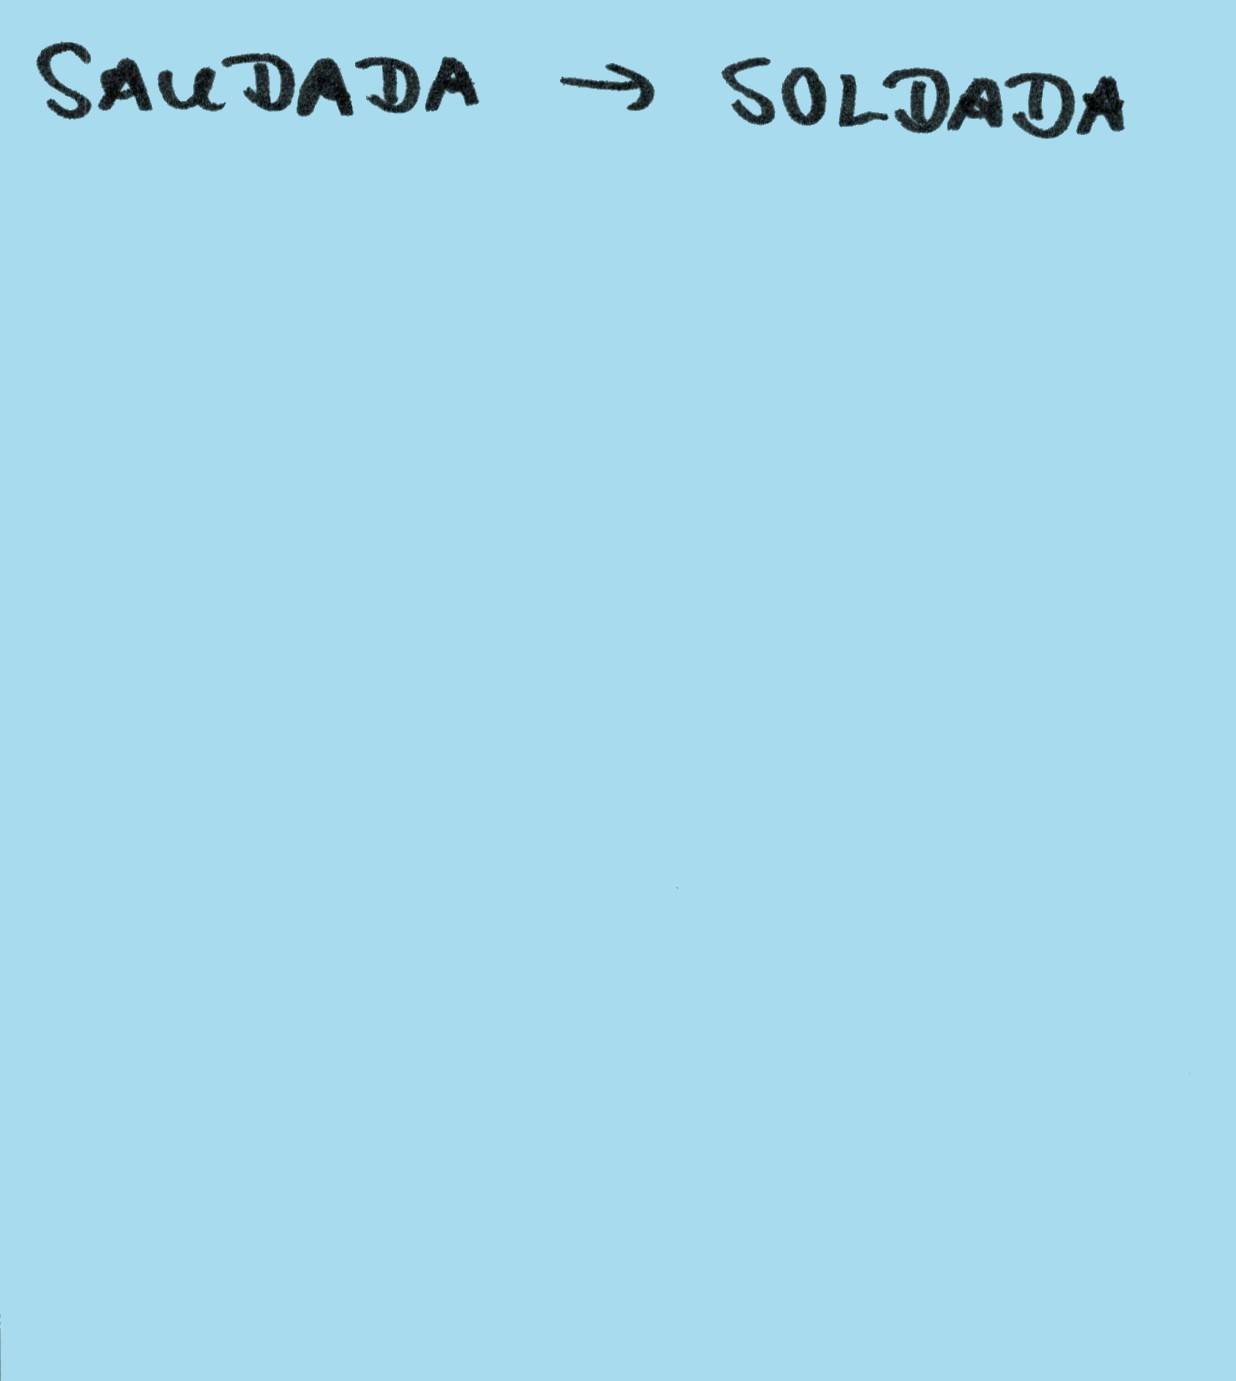 SAUDADA → SOLDADA